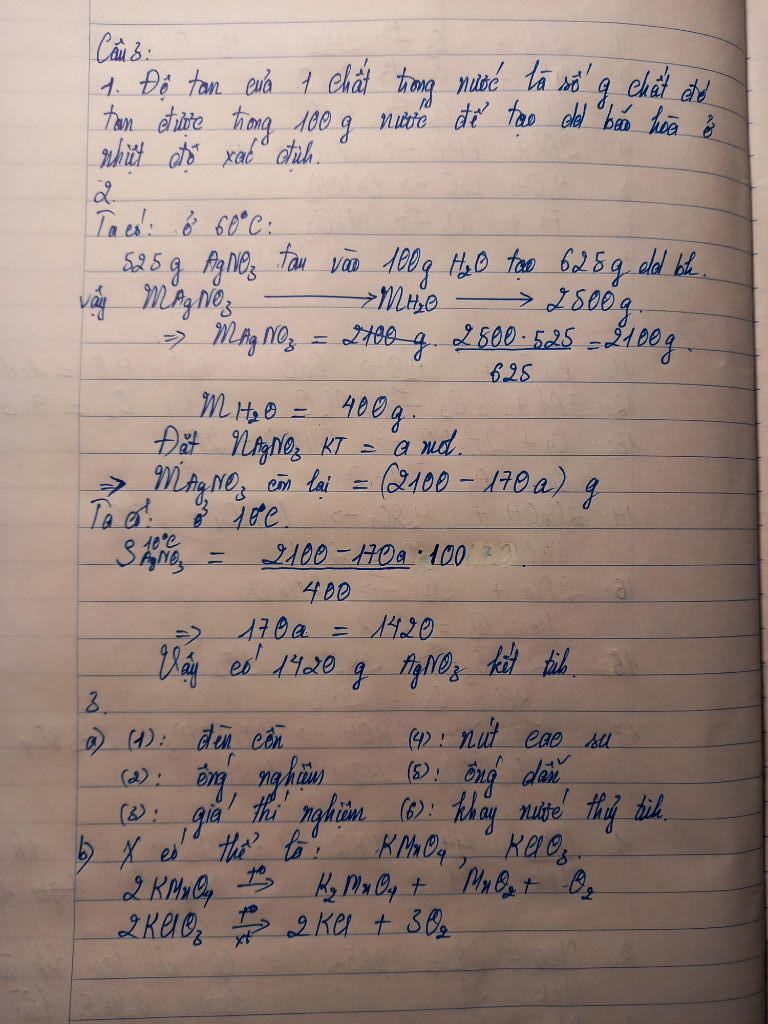 Câu 3:
1. Độ tan của 1 chất trong nước là số g chất đó
tan được trong 100 g nước để tạo dd bão hòa ở
nhiệt độ xác định.
2.
Ta có: ở 60°C:
525 g AgNO3 tan vào 100g H2O tạo 625g dd bh.
vậy mAgNO3 ⟶ mH2O ⟶ 2500g.
=> mAgNO3 = 2100 g. 2500·525/625 = 2100g.
mH2O = 400g.
Đặt nAgNO3 KT = a mol.
=> mAgNO3 còn lại = (2100 - 170a) g
Ta có: ở 10°C.
S 10°C AgNO3 = (2100 - 170a)/400 · 100
=> 170a = 1420
Vậy có 1420 g AgNO3 kết tinh.
3.
a) (1): đèn cồn (4): nút cao su
(2): ống nghiệm (5): ống dẫn
(3): giá thí nghiệm (6): khay nước thuỷ tinh.
b) X có thể là: KMnO4, KClO3.
2KMnO4 t°→ K2MnO4 + MnO2 + O2
2KClO3 t°→xt 2KCl + 3O2